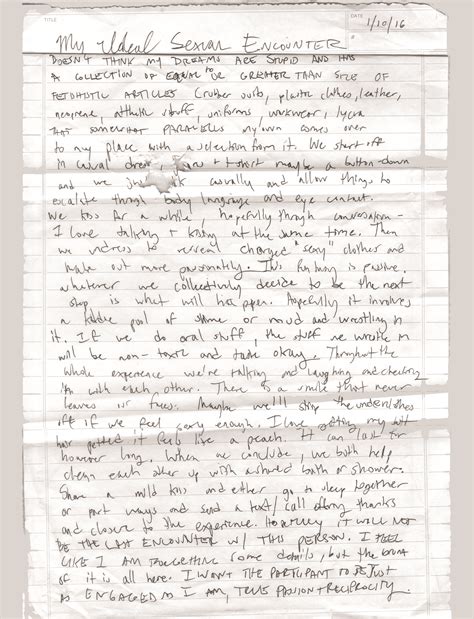 TITLE
DATE
1/10/16
My Ideal Sexual Encounter
DOESN'T THINK MY DREAMS ARE STUPID AND HAS
A COLLECTION OF EQUAL TO OR GREATER THAN SIZE OF
FETISHISTIC ARTICLES (rubber, plastic clothes, leather,
neoprene, athletic stuff, uniforms, workwear, lycra
THAT SOMEWHAT PARALLELS my own comes over
to my place with a selection from it. We start off
in casual dress, t-shirt maybe a button-down
and we just casually and allow things to
escalate through body language and eye contact.
We kiss for a while, hopefully through conversation -
I love talking + kissing at the same time. Then
we undress to reveal charged "sexy" clothes and
make out more passionately. This is passive,
whatever we collectively decide to be the next
step is what will happen. Hopefully it involves
a kiddie pool of slime or mud and wrestling in
it. If we do oral stuff, the stuff we wrestle in
will be non-toxic and taste okay. Throughout the
whole experience we're talking and laughing and checking
in with each other. There is a smile that never
leaves our faces. Maybe we'll strip the underclothes
off if we feel sexy enough. I love getting my butt
hair petted it feels like a peach. It can last for
however long. When we conclude, we both help
clean each other up with a shared bath or shower.
Share a mild kiss and either go to sleep together
or part ways and send a text/call along thanks
and closure to the experience. Hopefully it will not
BE THE LAST ENCOUNTER W/ THIS PERSON. I FEEL
LIKE I AM FORGETTING some details, but the
of it is all here. I WANT THE PARTICIPANT TO BE JUST
AS ENGAGED AS I AM, TRUE PASSION + RECIPROCITY.